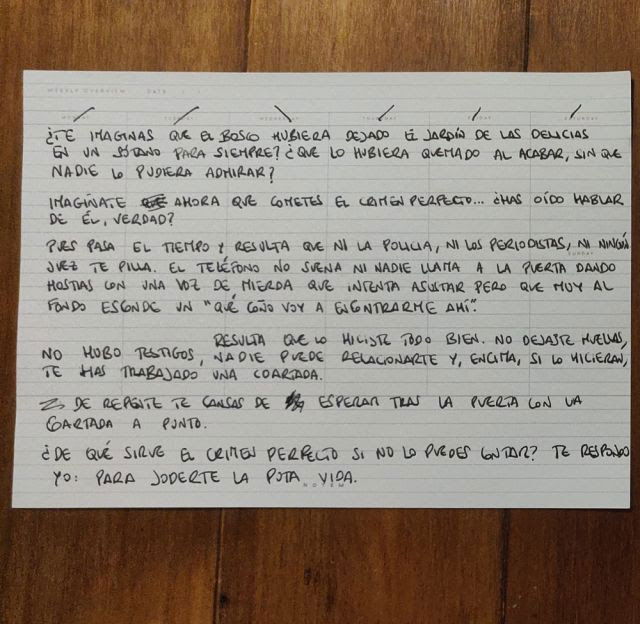 WEEKLY OVERVIEW DATE
MONDAY TUESDAY WEDNESDAY THURSDAY FRIDAY SATURDAY
¿TE IMAGINAS QUE EL BOSCO HUBIERA DEJADO EL JARDÍN DE LAS DELICIAS
EN UN SÓTANO PARA SIEMPRE? ¿QUE LO HUBIERA QUEMADO AL ACABAR, SIN QUE
NADIE LO PUDIERA ADMIRAR?
IMAGÍNATE AHORA QUE COMETES EL CRIMEN PERFECTO... ¿HAS OÍDO HABLAR
DE ÉL, VERDAD?
PUES PASA EL TIEMPO Y RESULTA QUE NI LA POLICIA, NI LOS PERIODISTAS, NI NINGÚN
SUNDAY
JUEZ TE PILLA. EL TELÉFONO NO SUENA NI NADIE LLAMA A LA PUERTA DANDO
HOSTIAS CON UNA VOZ DE MIERDA QUE INTENTA ASUSTAR PERO QUE MUY AL
FONDO ESCONDE UN "QUÉ COÑO VOY A ENCONTRARME AHÍ".
RESULTA QUE LO HICISTE TODO BIEN. NO DEJASTE HUELLAS,
NO HUBO TESTIGOS, NADIE PUEDE RELACIONARTE Y, ENCIMA, SI LO HICIERAN,
TE HAS TRABAJADO UNA COARTADA.
DE REPENTE TE CANSAS DE ESPERAR TRAS LA PUERTA CON LA
COARTADA A PUNTO.
¿DE QUÉ SIRVE EL CRIMEN PERFECTO SI NO LO PUEDES CONTAR? TE RESPONDO
YO: PARA JODERTE LA PUTA VIDA.